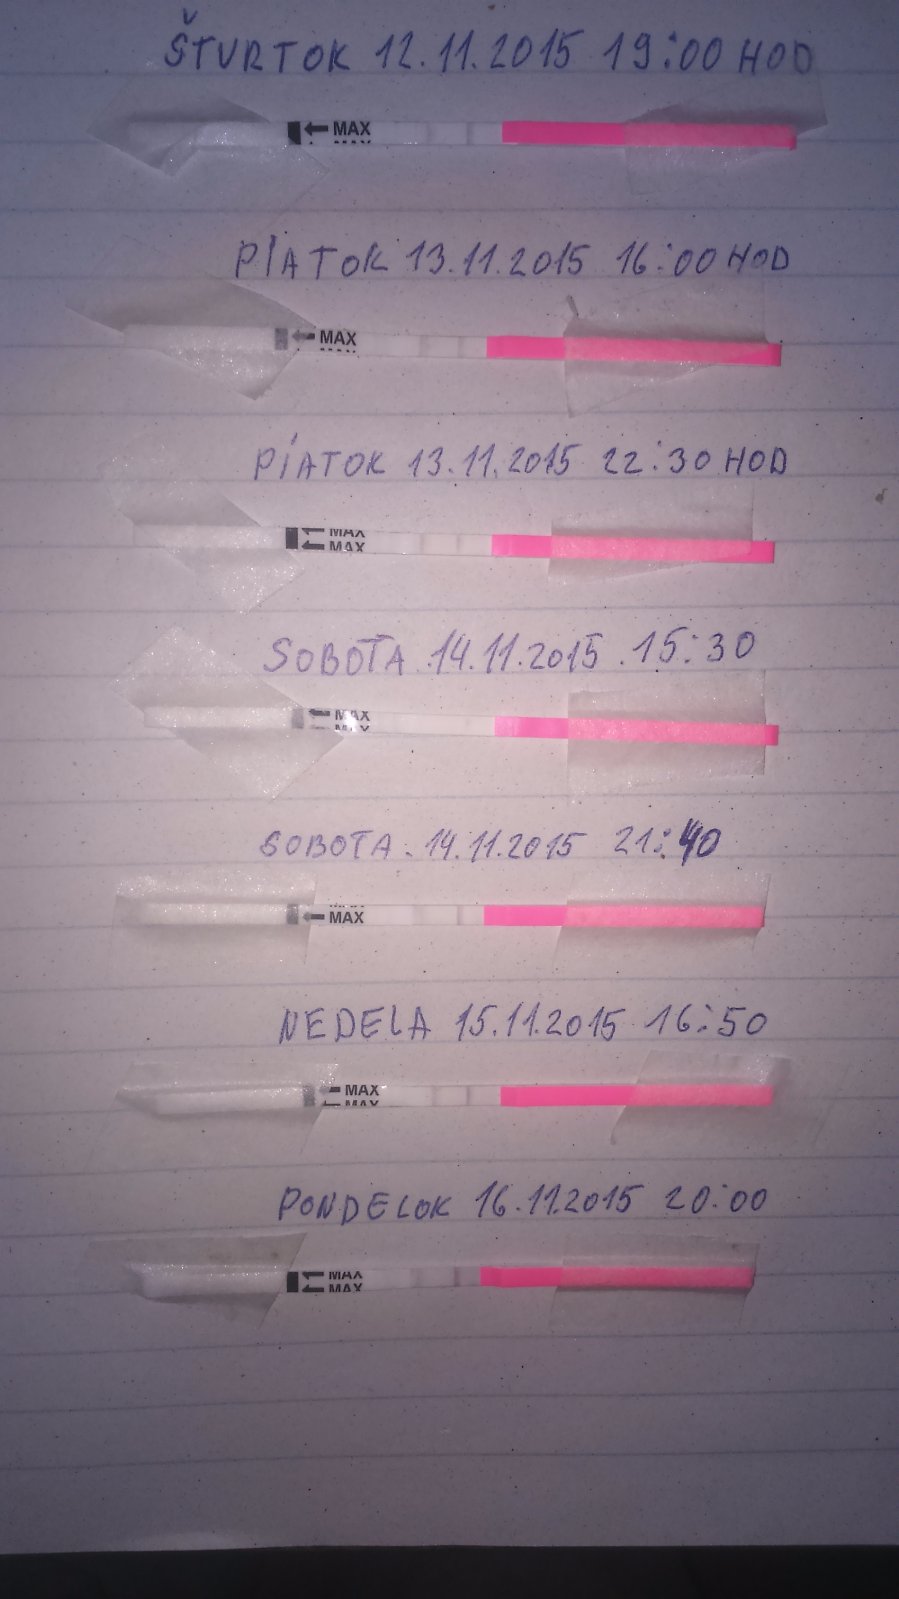 ŠTVRTOK 12.11.2015 19:00 HOD
MAX
MAX
PIATOK 13.11.2015 16:00 HOD
MAX
MAX
PIATOK 13.11.2015 22:30 HOD
MAX
MAX
SOBOTA 14.11.2015 15:30
MAX
MAX
SOBOTA 14.11.2015 21:40
MAX
NEDELA 15.11.2015 16:50
MAX
MAX
PONDELOK 16.11.2015 20:00
MAX
MAX